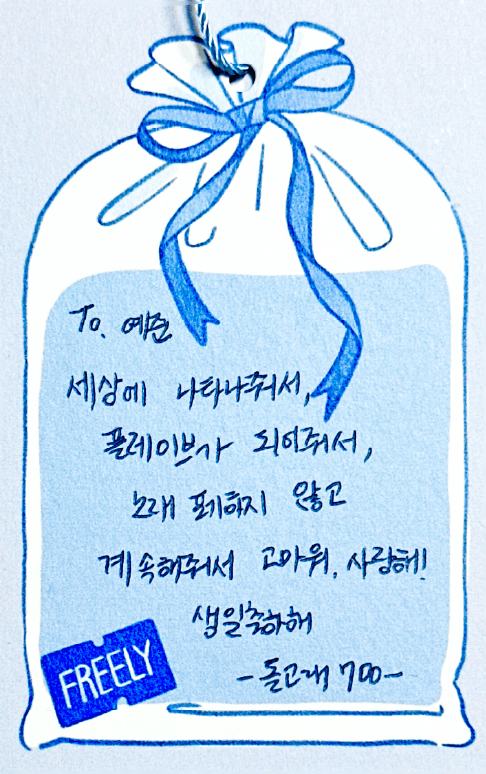 To. 예준
세상에 나타나줘서,
플레이브가 되어줘서,
노래 포기하지 않고
계속해줘서 고마워, 사랑해!
생일축하해
-돌고래 700-
FREELY